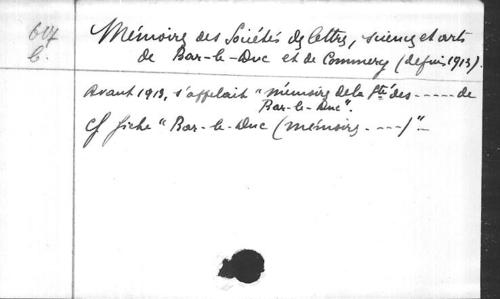 607
b.
Mémoires des Sociétés des lettres, sciences et arts
de Bar-le-Duc et de Commercy (depuis 1913).
Avant 1913, s'appelait "mémoires de la Sté des ----- de
Bar-le-Duc".
Cf fiche "Bar-le-Duc (mémoires ----)"